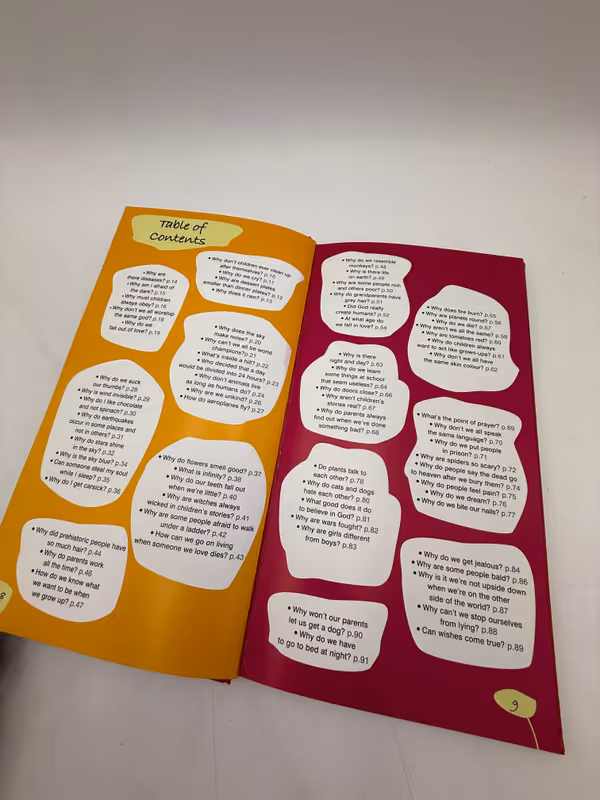 Table of
Contents
• Why don't children ever clean up
after themselves? p.10
• Why do we cry? p.11
• Why are dessert plates
smaller than dinner plates? p.12
• Why does it rain? p.13
• Why are
there diseases? p.14
• Why am I afraid of
the dark? p.15
• Why must children
always obey? p.16
• Why don't we all worship
the same god? p.18
• Why do we
fall out of love? p.19
• Why does the sky
make noise? p.20
• Why can't we all be world
champions? p.21
• What's inside a hill? p.22
• Who decided that a day
would be divided into 24 hours? p.23
• Why don't animals live
as long as humans do? p.24
• Why are we unkind? p.26
• How do aeroplanes fly? p.27
• Why do we suck
our thumbs? p.28
• Why is wind invisible? p.29
• Why do I like chocolate
and not spinach? p.30
• Why do earthquakes
occur in some places and
not in others? p.31
• Why do stars shine
in the sky? p.32
• Why is the sky blue? p.34
• Can someone steal my soul
while I sleep? p.35
• Why do I get carsick? p.36
• Why do flowers smell good? p.37
• What is infinity? p.38
• Why do our teeth fall out
when we're little? p.40
• Why are witches always
wicked in children's stories? p.41
• Why are some people afraid to walk
under a ladder? p.42
• How can we go on living
when someone we love dies? p.43
• Why did prehistoric people have
so much hair? p.44
• Why do parents work
all the time? p.46
• How do we know what
we want to be when
we grow up? p.47
8
• Why do we resemble
monkeys? p.48
• Why is there life
on earth? p.49
• Why are some people rich
and others poor? p.50
• Why do grandparents have
grey hair? p.51
• Did God really
create humans? p.52
• At what age do
we fall in love? p.54
• Why does fire burn? p.55
• Why are planets round? p.56
• Why do we die? p.57
• Why aren't we all the same? p.58
• Why are tomatoes red? p.60
• Why do children always
want to act like grown-ups? p.61
• Why don't we all have
the same skin colour? p.62
• Why is there
night and day? p.63
• Why do we learn
some things at school
that seem useless? p.64
• Why do doors close? p.66
• Why aren't children's
stories real? p.67
• Why do parents always
find out when we've done
something bad? p.68
• What's the point of prayer? p.69
• Why don't we all speak
the same language? p.70
• Why do we put people
in prison? p.71
• Why are spiders so scary? p.72
• Why do people say the dead go
to heaven after we bury them? p.74
• Why do people feel pain? p.75
• Why do we dream? p.76
• Why do we bite our nails? p.77
• Do plants talk to
each other? p.78
• Why do cats and dogs
hate each other? p.80
• What good does it do
to believe in God? p.81
• Why are wars fought? p.82
• Why are girls different
from boys? p.83
• Why do we get jealous? p.84
• Why are some people bald? p.86
• Why is it we're not upside down
when we're on the other
side of the world? p.87
• Why can't we stop ourselves
from lying? p.88
• Can wishes come true? p.89
• Why won't our parents
let us get a dog? p.90
• Why do we have
to go to bed at night? p.91
9